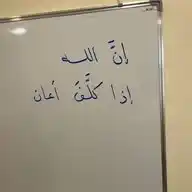 إنَّ الله
إذا كلَّفَ أعان